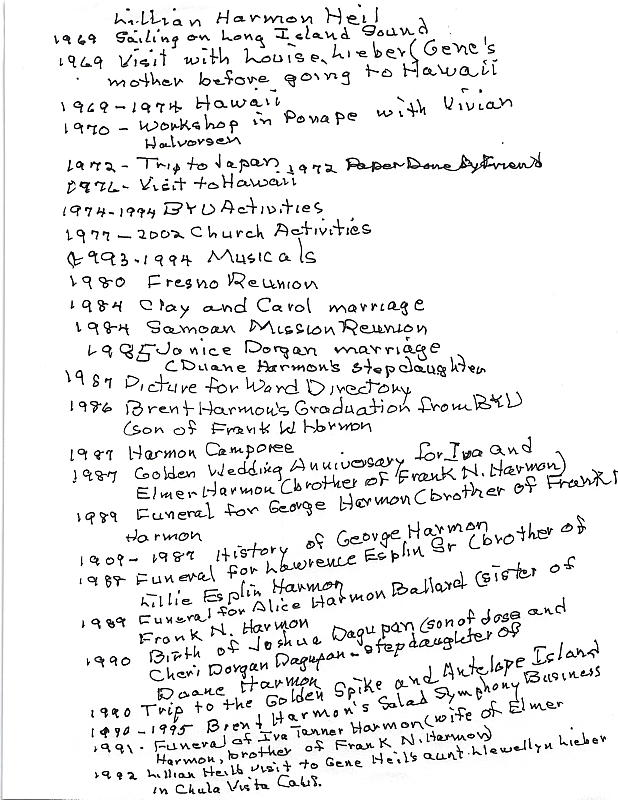 Lillian Harmon Heil
1969 Sailing on Long Island Sound
1969 Visit with Louise Lieber (Gene's
mother before going to Hawaii
1969-1974 Hawaii
1970 - Workshop in Ponape with Vivian
Halvorsen
1972 - Trip to Japan, 1972 Paper Done By Friend
1976 - Visit to Hawaii
1974-1994 BYU Activities
1977-2002 Church Activities
1993-1994 Musicals
1980 Fresno Reunion
1984 Clay and Carol marriage
1984 Samoan Mission Reunion
1985 Janice Dorgan marriage
(Duane Harmon's stepdaughter
1987 Picture for Ward Directory
1986 Brent Harmon's Graduation from BYU
(son of Frank W Harmon
1987 Harmon Camporee
1987 Golden Wedding Anniversary for Iva and
Elmer Harmon (brother of Frank N. Harmon)
1989 Funeral for George Harmon (brother of Frank N
Harmon
1909-1987 History of George Harmon
1988 Funeral for Lawrence Esplin Sr (brother of
Lillie Esplin Harmon
1989 Funeral for Alice Harmon Ballard (sister of
Frank N. Harmon
1990 Birth of Joshua Dagupan (son of Jose and
Cheri Dorgan Dagupan - stepdaughter of
Duane Harmon
1990 Trip to the Golden Spike and Antelope Island
1990-1995 Brent Harmon's Salad Symphony Business
1991 - Funeral of Iva Tanner Harmon (wife of Elmer
Harmon, brother of Frank N. Harmon)
1992 Lillian Heil's visit to Gene Heil's aunt Llewellyn Lieber
in Chula Vista Calif.